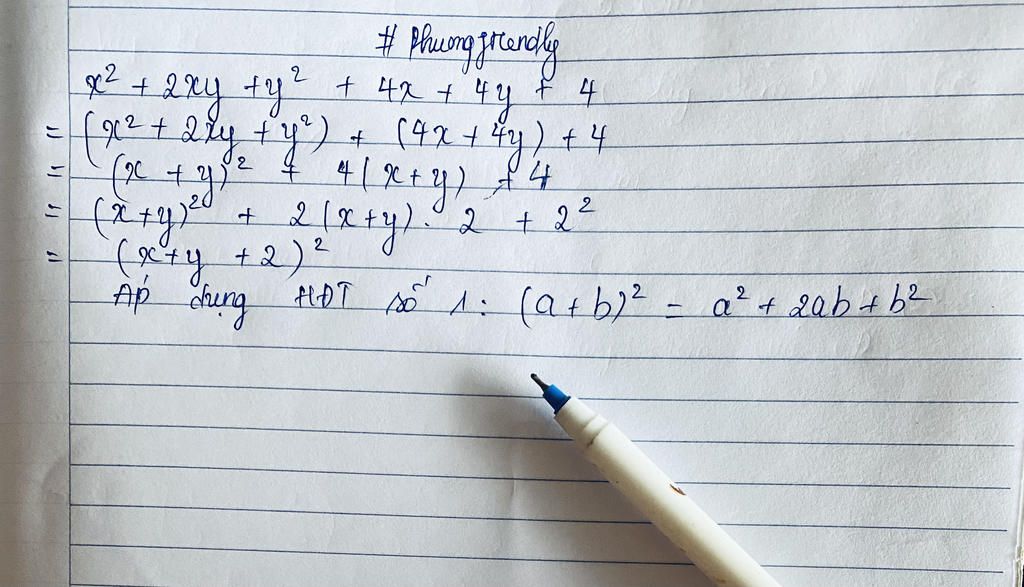 # Phuongfrendly
x² + 2xy + y² + 4x + 4y + 4
= (x² + 2xy + y²) + (4x + 4y) + 4
= (x + y)² + 4(x + y) + 4
= (x + y)² + 2(x + y) . 2 + 2²
= (x + y + 2)²
Áp dụng HĐT số 1: (a + b)² = a² + 2ab + b²